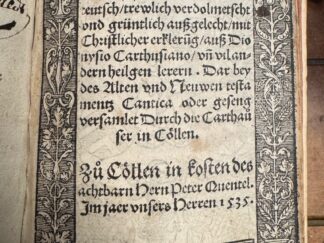 teutsch/trewlich verdolmetscht
vnd grüntlich außgelecht/mit
Christlicher erklerūg/auß Dio
nysio Carthusiano/vn̄ vil an-
dern heilgen lerern. Dar bey
des Alten vnd Neuwen testa
mentz Cantica oder geseng
versamlet Durch die Carthäu
ser in Cöllen.
Zů Cöllen in kosten des
achtbarn Hern Peter Quentel.
Im jaer vnsers Herren 1535.